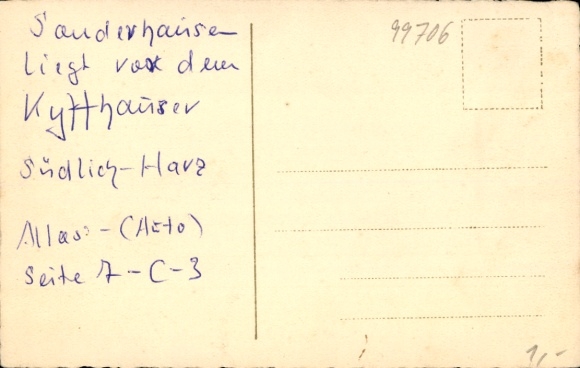 Sonderhausen
liegt vor dem
Kyffhäuser
Südlich-Harz
Atlas - (Auto)
Seite 7-C-3
99706
1,-